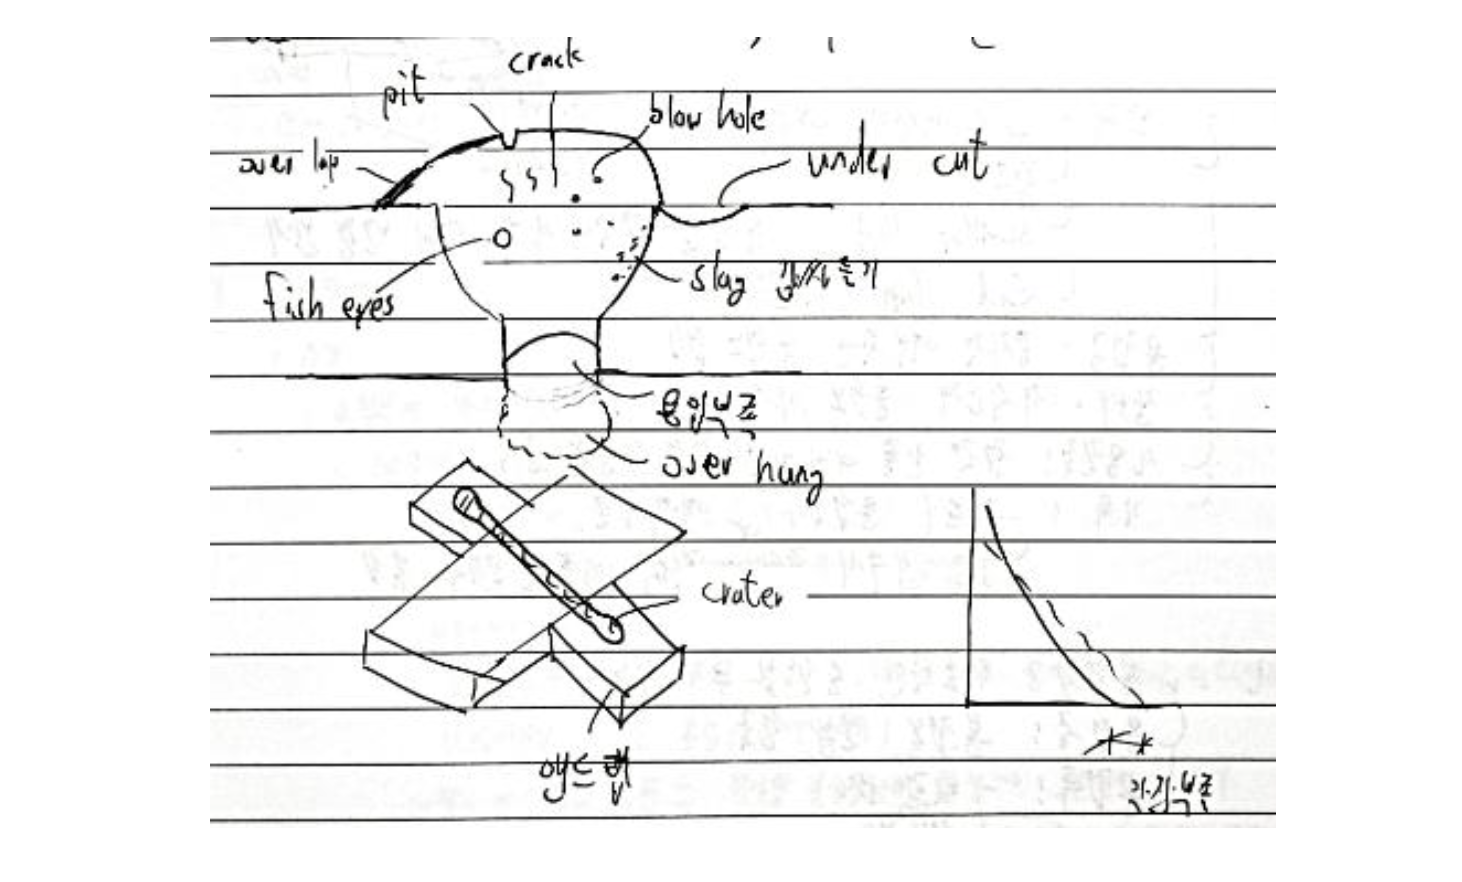 crack
pit
blow hole
over lap
under cut
fish eyes
slag 감싸들기
용입부족
over hung
crater
엔드탭
각장부족